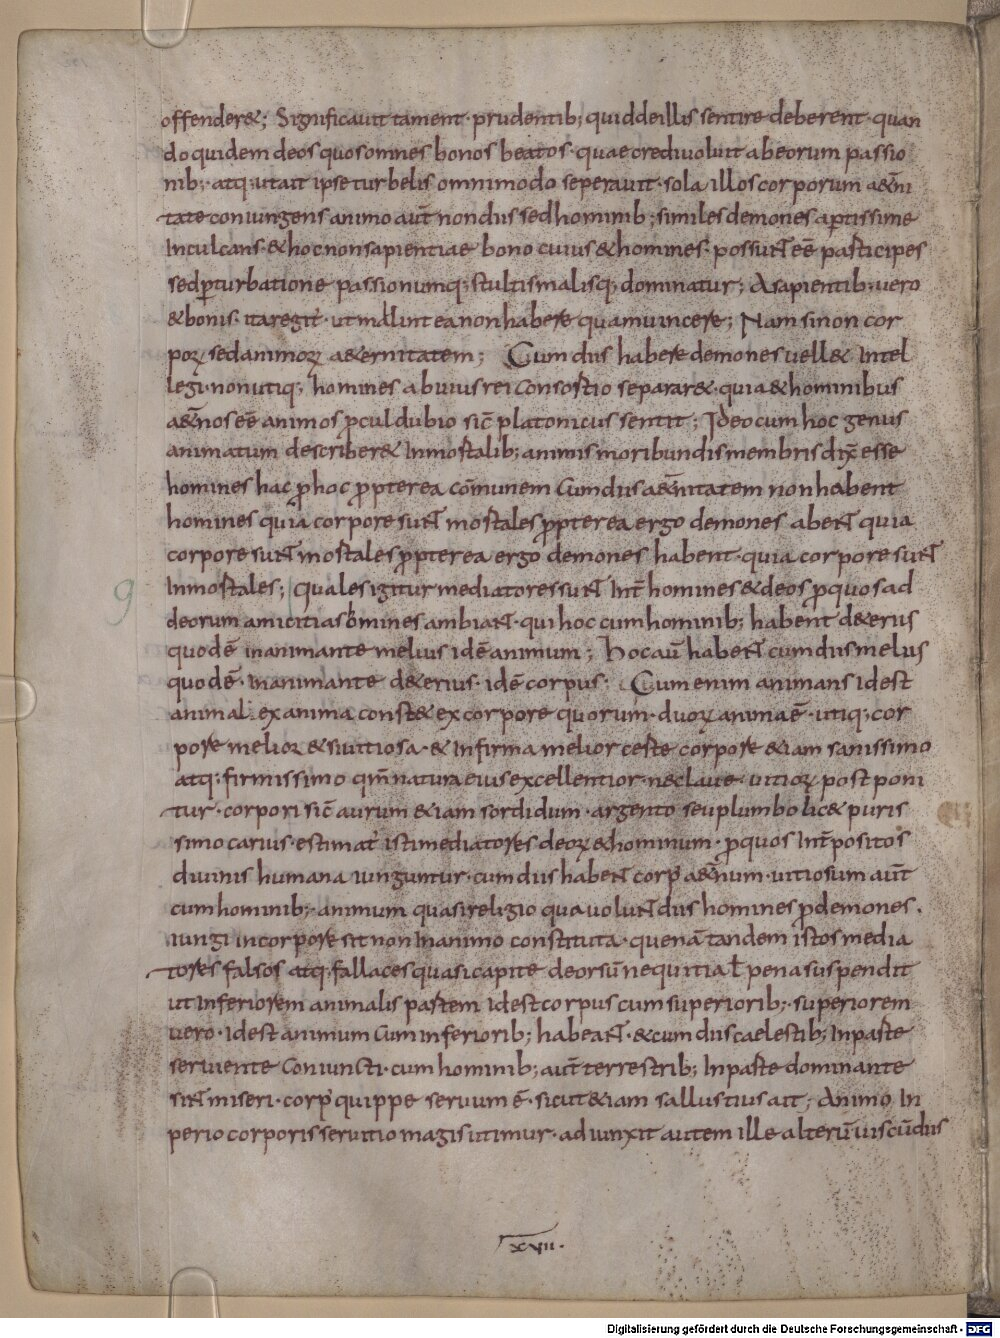 offender&; Significauit tament· prudentib; quiddeillis sentire deberent· quan
do quidem deos quos omnes bonos beatos· quae credi uoluit ab eorum passio
nib;· atq; ut ait ipse turbelis omnimodo seperauit· sola illos corporum a&̄ni
tate coniungens animo aut̄ non diis sed hominib; similes demones aptissime
Inculcans· & hoc non sapientiae bono cuius & homines· possunt eē participes
sed ꝑturbatione passionumq; stultis malisq; dominatur; Asapientib; uero
& bonis· ita regit᷒· ut malint ea non habere quam uincere; Nam si non cor
poꝝ sed animoꝝ a&ernitatem; Cum diis habere demones uell& Intel
legi· non utiq; homines ab uius rei Consortio separar&· quia & hominibus
a&̄nos eē animos ꝓcul dubio sic̄ platonicus sentit; Ideo cum hoc genus
animatum describer& Inmortalib; animis moribundis membris dix̄ esse
homines hac ꝓ hoc ꝓpterea cōmunem Cum diis a&̄nitatem non habent
homines quia corpore sunt mortales ꝓpterea ergo demones abent quia
corpore sunt mortales ꝓpterea ergo demones habent· quia corpore sunt
Inmortales; Quales igitur mediatores sunt Int̄ homines & deos ꝓ quos ad
deorum amicitias homines ambiant· qui hoc cum hominib; habent d&erius
quod ē inanimante melius id ē animum; Hoc aū habent cum diis melus
quod ē· inanimante d&erius· id ē corpus· Cum enim animans id est
animal· ex anima const& ex corpore quorum· duoꝝ anima ē· utiq; cor
pore melioꝝ & si uitiosa· & Infirma melior certe corpore &iam sanissimo
atq; firmissimo qm̄ natura eius excellentior· nec laue· uitioꝝ postponi
tur· corpori sic̄ aurum &iam sordidum· argento seu plumbo lic& puris
simo carius· estimat᷒ isti mediatores deoꝝ & hominum· ꝓ quos Int̄positos
diuinis humana iunguntur· cum diis habent corp᷒ a&̄num· uitiosum aut̄
cum hominib;· animum quasi religio qua uolunt diis homines ꝓ demones·
iungi in corpore sit non Inanimo constituta· quenā tandem istos media
tores falsos atq; fallaces quasi capite deorsū nequitia ł pena suspendit
ut Inferiorem animalis partem id est corpus cum superiorib;· superiorem
uero· id est animum Cum inferiorib; habeant· & cum diis caelestib; Inparte
seruiente Coniuncti· cum hominib; aut̄ terrestrib; Inparte dominante
sint miseri· corp᷒ quippe seruum ē· sicut &iam sallustius ait; Animo In
perio corporis seruitio magis utimur· adiunxit autem ille alterū uis cū diis
xvii·
9
Digitalisierung gefördert durch die Deutsche Forschungsgemeinschaft - DFG